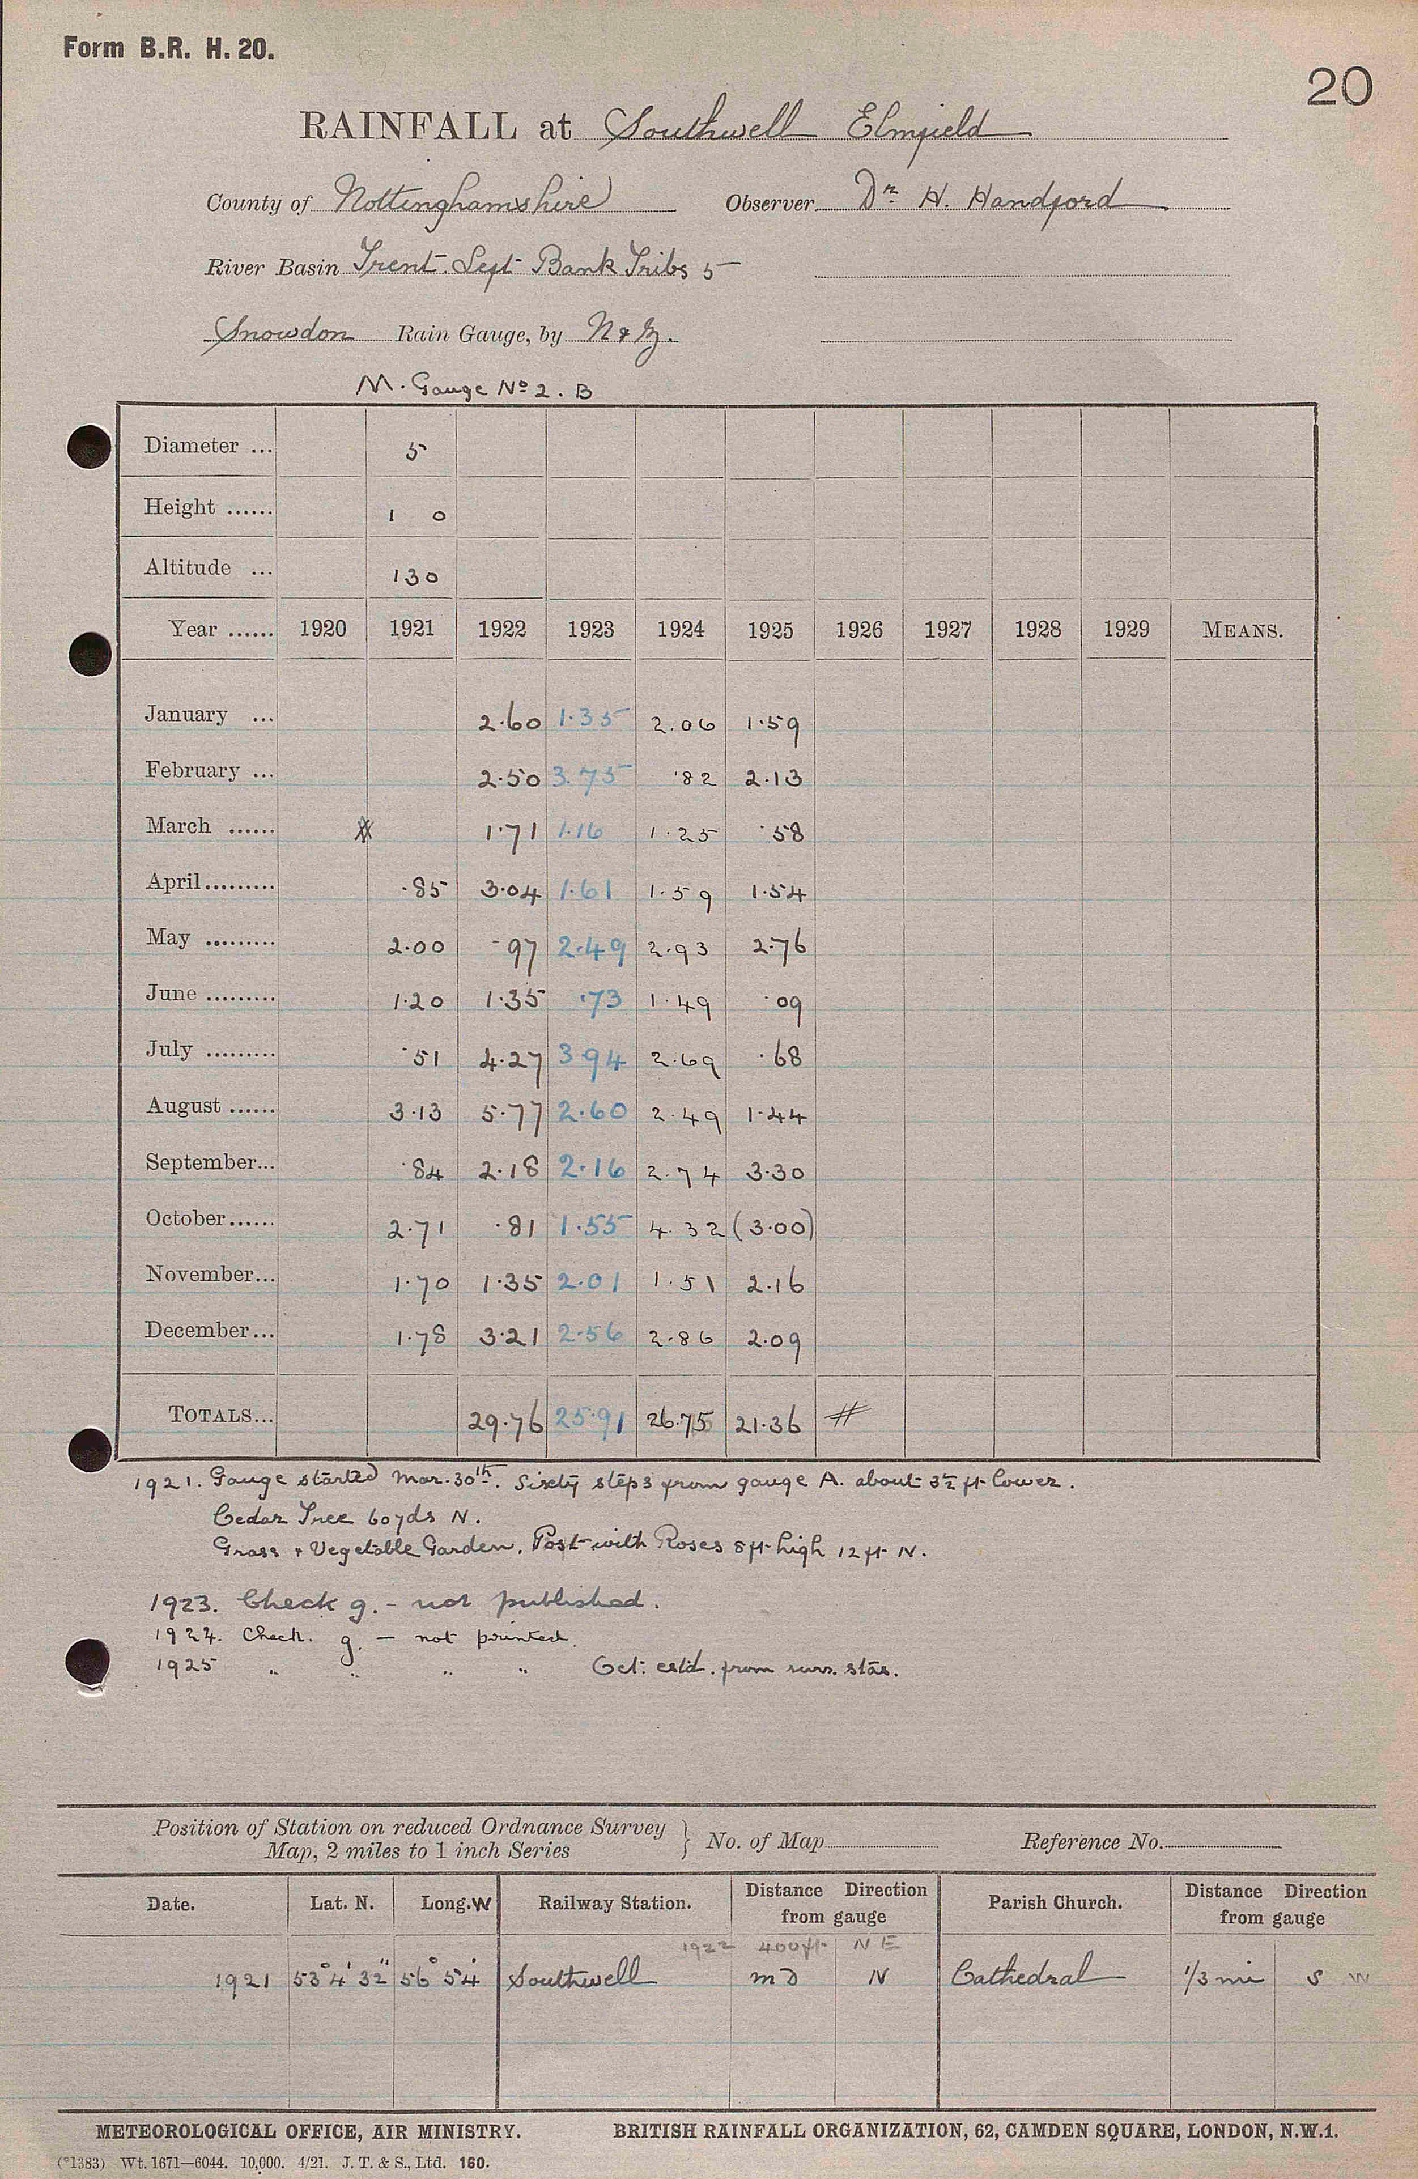 Form B.R. H. 20.
20
RAINFALL at Southwell Elmfield
County of Nottinghamshire Observer Dr. H. Handford
River Basin Trent. Left Bank Tribs 5
Snowdon Rain Gauge, by N & Z.
M. Gauge No 2. B
Diameter ... 5
Height ...... 1 0
Altitude ... 130
Year ...... 1920 1921 1922 1923 1924 1925 1926 1927 1928 1929 MEANS.
January ... 2.60 1.35 2.06 1.59
February ... 2.50 3.75 .82 2.13
March ...... 1.71 1.16 1.25 .58
April......... .85 3.04 1.61 1.59 1.54
May ......... 2.00 .97 2.49 2.93 2.76
June ......... 1.20 1.35 .73 1.49 .09
July ......... .51 4.27 3.94 2.69 .68
August ...... 3.13 5.77 2.60 2.49 1.44
September... .84 2.18 2.16 2.74 3.30
October...... 2.71 .81 1.55 4.32 (3.00)
November... 1.70 1.35 2.01 1.51 2.16
December... 1.78 3.21 2.56 2.86 2.09
TOTALS... 29.76 25.91 26.75 21.36 #
1921. Gauge started Mar. 30th. Sixty steps from gauge A. about 3½ ft lower.
Cedar Tree 60yds N.
Grass & Vegetable Garden. Post with Roses 8ft high 12 ft N.
1923. Check g. - not published.
1924. Check. g. — not printed.
1925 " " " " Oct: estd. from surr. stns.
Position of Station on reduced Ordnance Survey
Map, 2 miles to 1 inch Series
No. of Map
Reference No.
Date. Lat. N. Long. W Railway Station. Distance Direction from gauge Parish Church. Distance Direction from gauge
1922 400ft NE
1921 53° 4' 32" 56° 54' Southwell N Cathedral 1/3 mi S W
METEOROLOGICAL OFFICE, AIR MINISTRY. BRITISH RAINFALL ORGANIZATION, 62, CAMDEN SQUARE, LONDON, N.W.1.
(*1383) Wt. 1671—6044. 10,000. 4/21. J. T. & S., Ltd. 160.